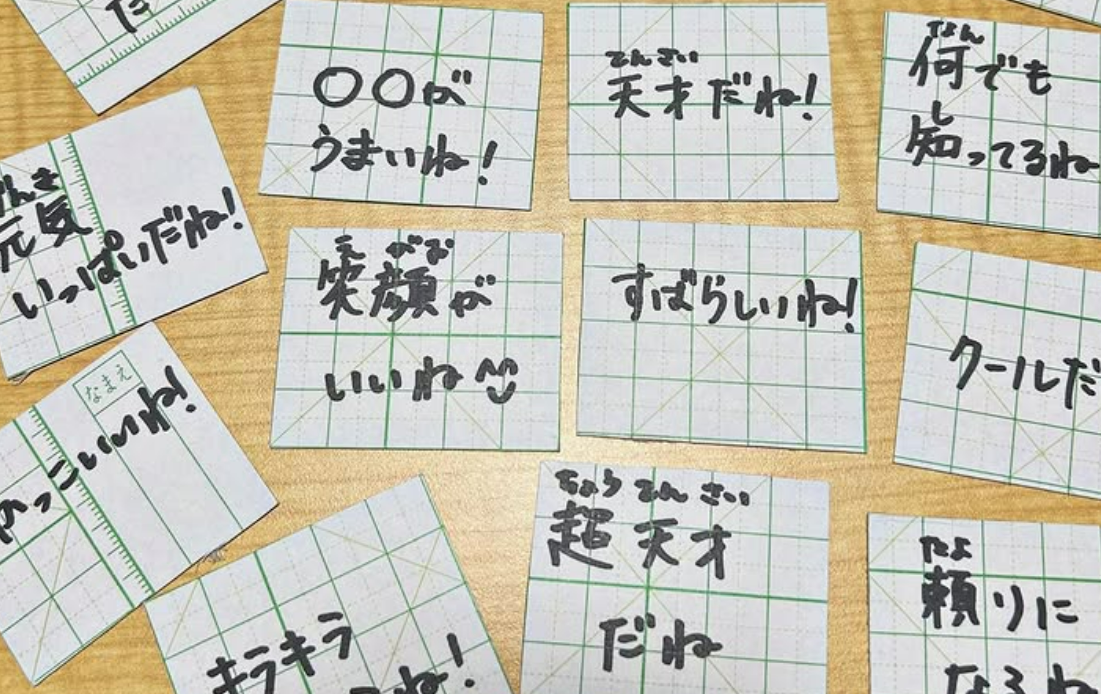 だ
〇〇が
うまいね!
てんさい
天才だね!
なん
何でも
し
知ってるね
げんき
元気
いっぱいだね!
えがお
笑顔が
いいね
すばらしいね!
クールだ
なまえ
かっこいいね!
キラキラ
ね!
ちょうてんさい
超天才
だね
たよ
頼りに
なるね